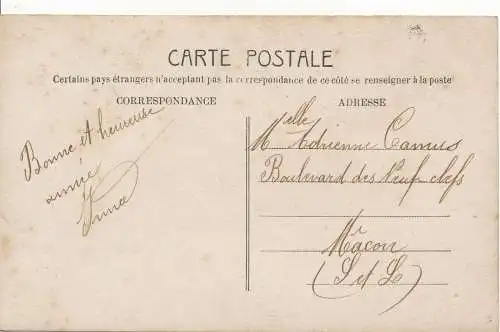 CARTE POSTALE
Certains pays étrangers n'acceptant pas la correspondance de ce côté se renseigner à la poste
CORRESPONDANCE
Bonne et heureuse
année
ADRESSE
Melle Adrienne Camus
Boulevard des Neuf clefs
Mâcon
(S et L)